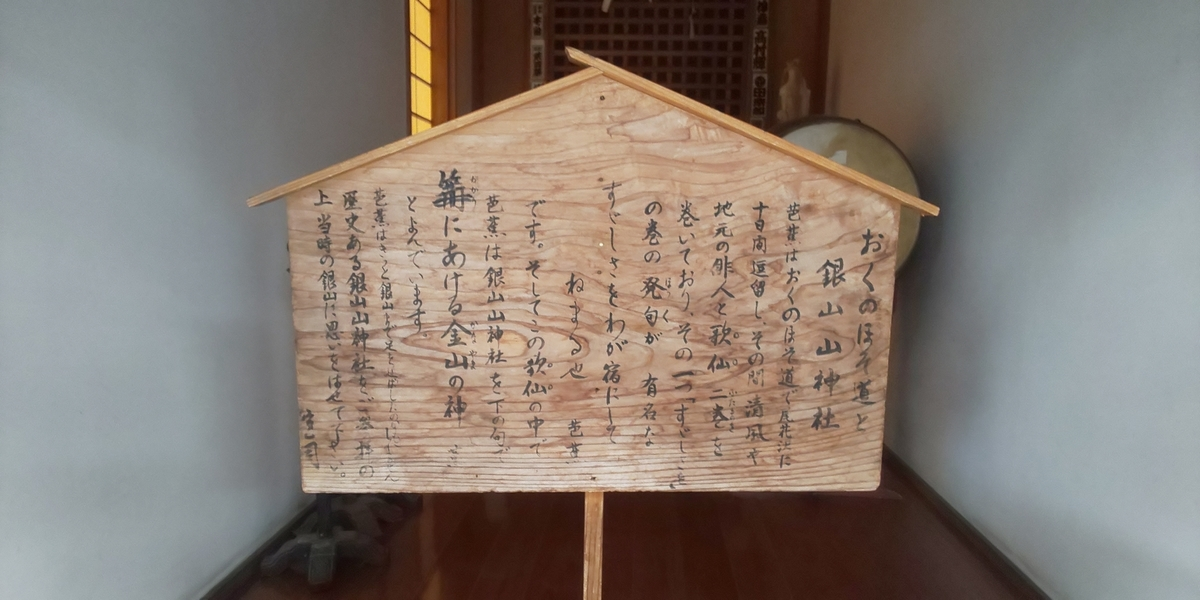 おくのほそ道と
銀山山神社
芭蕉はおくのほそ道で尾花沢に
十日間逗留し、その間清風や
地元の俳人と歌仙二巻を
巻いており、その一つ「すゞしさを」
の巻の発句が 有名な
すゞしさをわが宿にして
ねまる也 芭蕉
です。そしてこの歌仙の中で
芭蕉は銀山山神社を下の句で
篝にあける金山の神
とよんでいます。
芭蕉はきっと銀山
歴史ある銀山山神社をご参拝の
上当時の銀山に思いをはせて下さい。
宮司